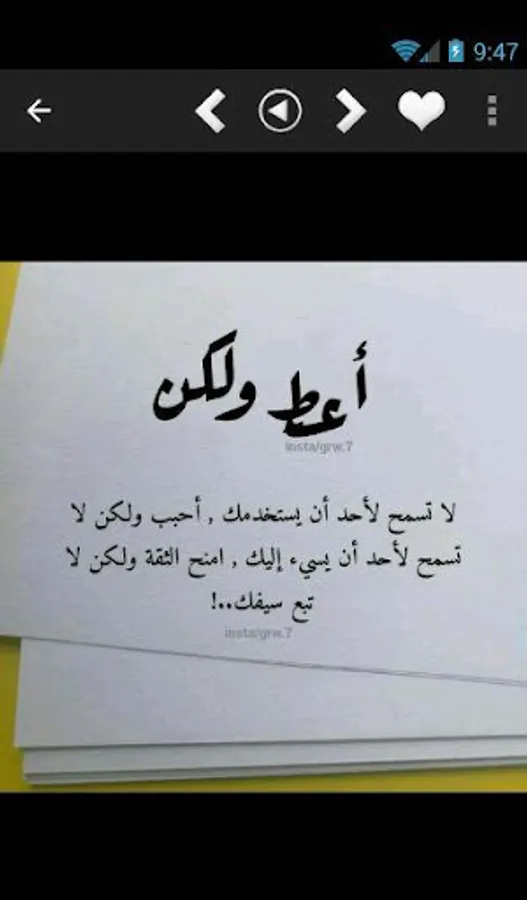 9:47
أعط ولكن
insta/grw.7
لا تسمح لأحد أن يستخدمك , أحبب ولكن لا
تسمح لأحد أن يسيء إليك , امنح الثقة ولكن لا
تبع سيفك..!
insta/grw.7